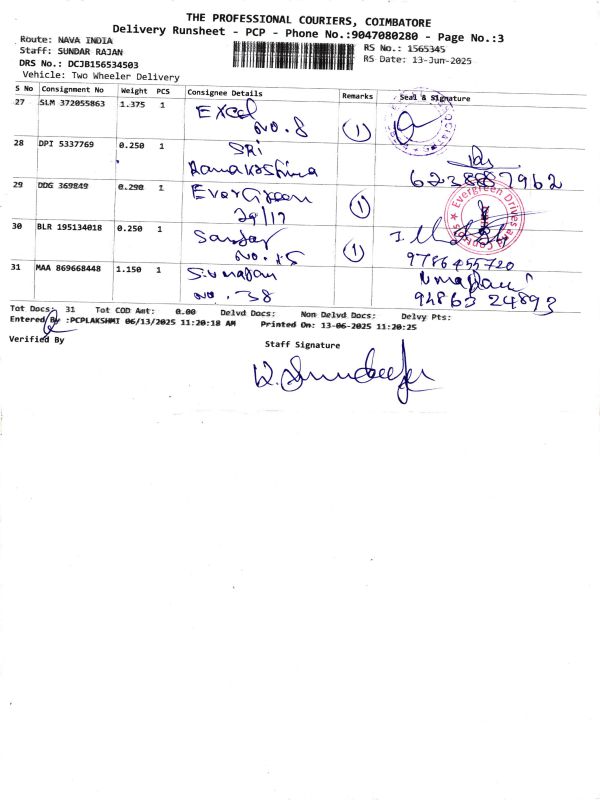 THE PROFESSIONAL COURIERS, COIMBATORE
Delivery Runsheet - PCP - Phone No.:9047080280 - Page No.:3
Route: NAVA INDIA
RS No.: 1565345
Staff: SUNDAR RAJAN
RS Date: 13-Jun-2025
DRS No.: DCJB156534503
Vehicle: Two Wheeler Delivery
S No Consignment No Weight PCS Consignee Details Remarks Seal & Signature
27 SLM 372055863 1.375 1 Excel
No. 8 (1)
28 DPI 5337769 0.250 1 SRi
Ramakrishna 6238887962
29 DDG 369849 0.290 1 EverGreen
29/17 (1)
Evergreen Drives and Controls
30 BLR 195134018 0.250 1 Sanjay
No. 15 (1) 9786455720
31 MAA 869668448 1.150 1 Sivarajan
No. 38 94863 24893
Tot Docs: 31 Tot COD Amt: 0.00 Delvd Docs: Non Delvd Docs: Delvy Pts:
Entered By :PCPLAKSHMI 06/13/2025 11:20:18 AM Printed On: 13-06-2025 11:20:25
Verified By
Staff Signature